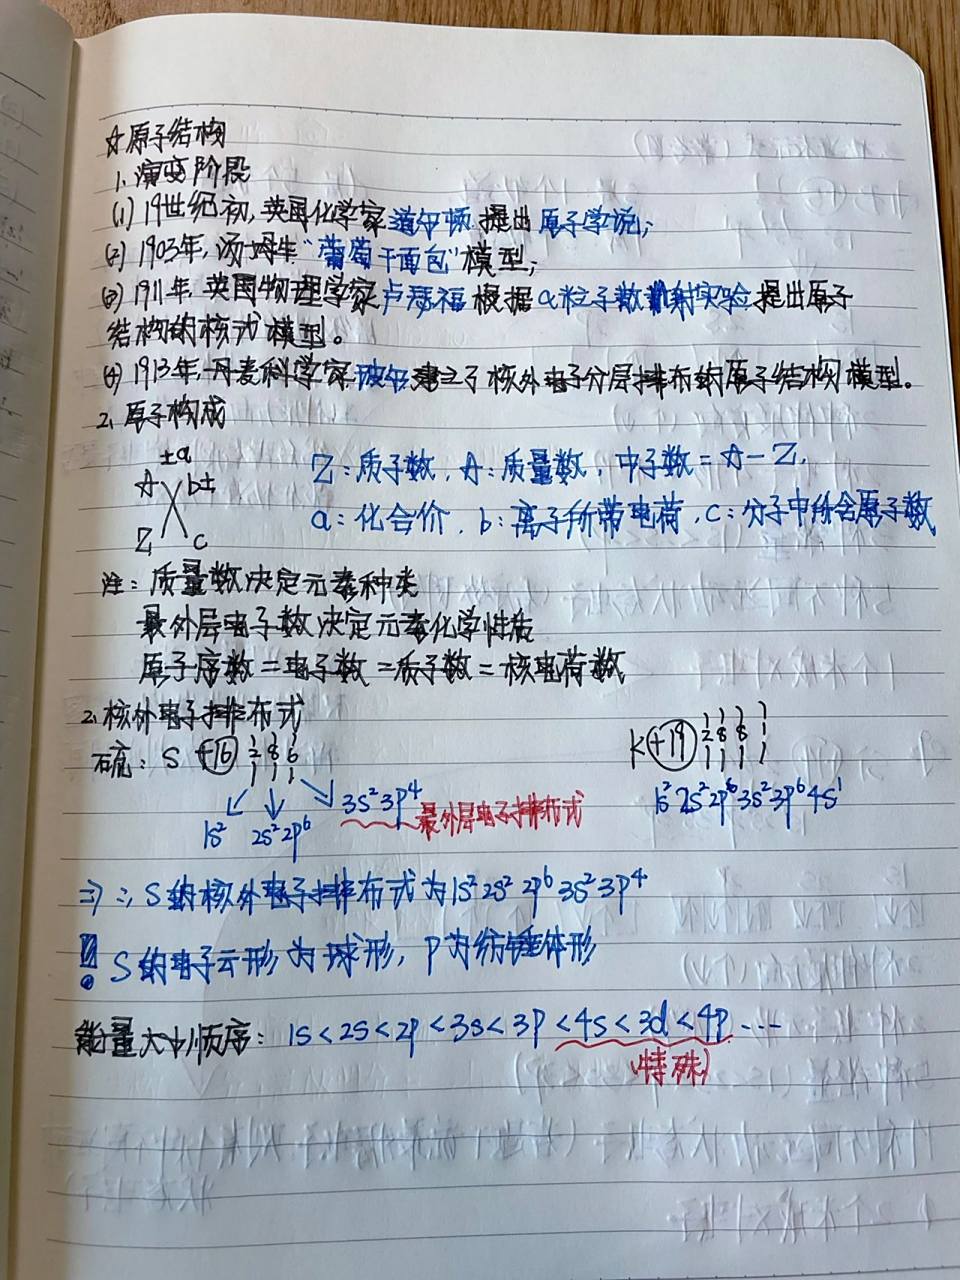 ☆原子结构
1. 演变阶段
(1) 19世纪初,英国化学家道尔顿提出原子学说;
(2) 1903年,汤姆生"葡萄干面包"模型;
(3) 1911年,英国物理学家卢瑟福根据α粒子散射实验提出原子
结构的核式模型。
(4) 1913年,丹麦科学家玻尔建立了核外电子分层排布的原子结构模型。
2. 原子构成
±a
A b±
Z c
Z:质子数,A:质量数,中子数=A-Z,
a:化合价,b:离子所带电荷,c:分子中所含原子数
注:质量数决定元素种类
最外层电子数决定元素化学性质
原子序数=电子数=质子数=核电荷数
2. 核外电子排布式
硫:S +16 2 8 6
1s² 2s²2p⁶ 3s²3p⁴ 最外层电子排布式
K +19 2 8 8 1
1s²2s²2p⁶3s²3p⁶4s¹
⇒ ∴S的核外电子排布式为1s²2s²2p⁶3s²3p⁴
! S的电子云形为球形,P为纺锤体形
能量大小顺序:1s<2s<2p<3s<3p<4s<3d<4p……
(特殊)